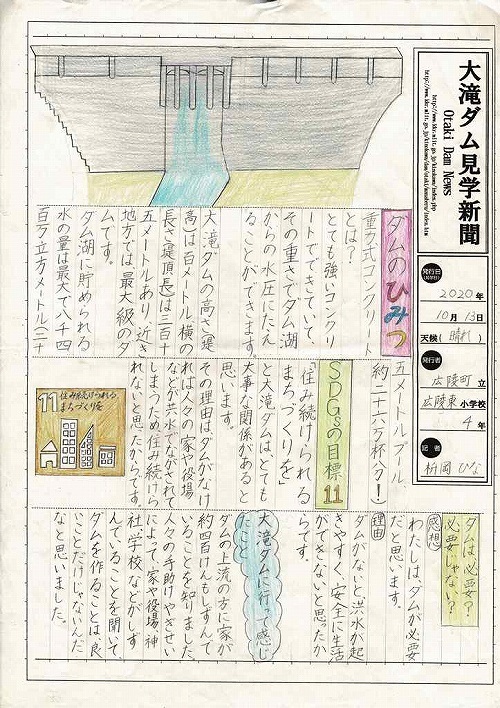 大滝ダム見学新聞
Otaki Dam News
発行日
2020年
10月13日
天候(晴れ)
発行者
広陵町立
広陵東小学校
4年
記者
ひな
ダムのひみつ
重力式コンクリート
とは?
とても強いコンクリ
ートでできていて、
その重さでダム湖
からの水圧にたえ
ることができます。
大滝ダムの高さ(堤
高)は百メートル横の
長さ(堤頂長)は三百十
五メートルあり、近き
地方では、最大級のダ
ムです。
ダム湖に貯められる
水の量は最大で八千四
百万立方メートル(二十
五メートルプール、
約二十六万杯分!)
SDGsの目標11
「住み続けられる
まちづくりを」
と大滝ダムは、とても
大事な関係があると
思います。
その理由はダムがなけ
れば人々の家や役場
などが洪水でながされて
しまうため、住み続けら
れないと思ったからです。
11 住み続けられる
まちづくりを
ダムは必要?
必要じゃない?
感想
わたしは、ダムが必要
だと思います。
理由
ダムがないと洪水が起
きやすく、安全に生活
ができないと思ったか
らです。
大滝ダムに行って感じ
たこと
ダムの上流の方に家が
約四百けんもしずんで
いることを知りました。
人々の手助けやぎせい
によって、家や役場、神
社、学校などがしず
んでいることを聞いて、
ダムを作ることは良
いことだけじゃないんだ
なと思いました。